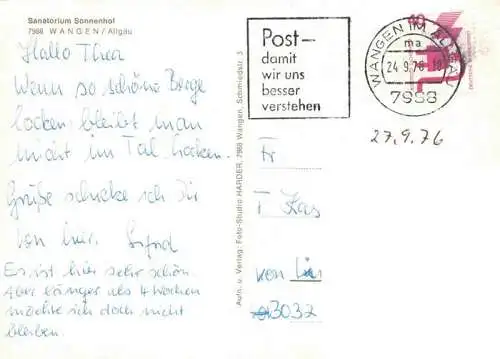 Sanatorium Sonnenhof
7988 WANGEN / Allgäu
Hallo Thea
Wenn so schöne Berge
locken, bleibt man
nicht im Tal hocken.
Grüße schicke ich Dir
von hier.
Es ist hier sehr schön.
Aber länger als 4 Wochen
möchte ich doch nicht
bleiben.
Aufn. u. Verlag: Foto-Studio HARDER, 7988 Wangen, Schmiedstr. 3
Post-
damit
wir uns
besser
verstehen
WANGEN IM ALLGÄU
ma
24.9.76-18
7988
40
27.9.76
Fr
T Kas
von
3032